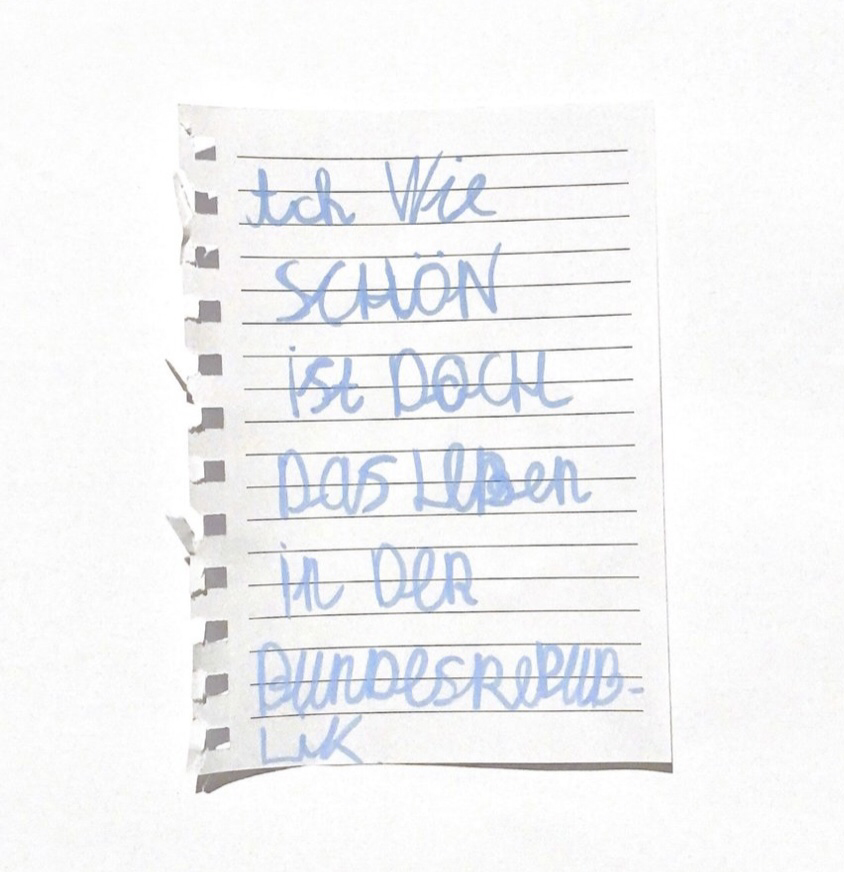 Ach Wie
SCHÖN
ist DOCH
Das Leben
in DeR
BUnDesRePUB-
LiK